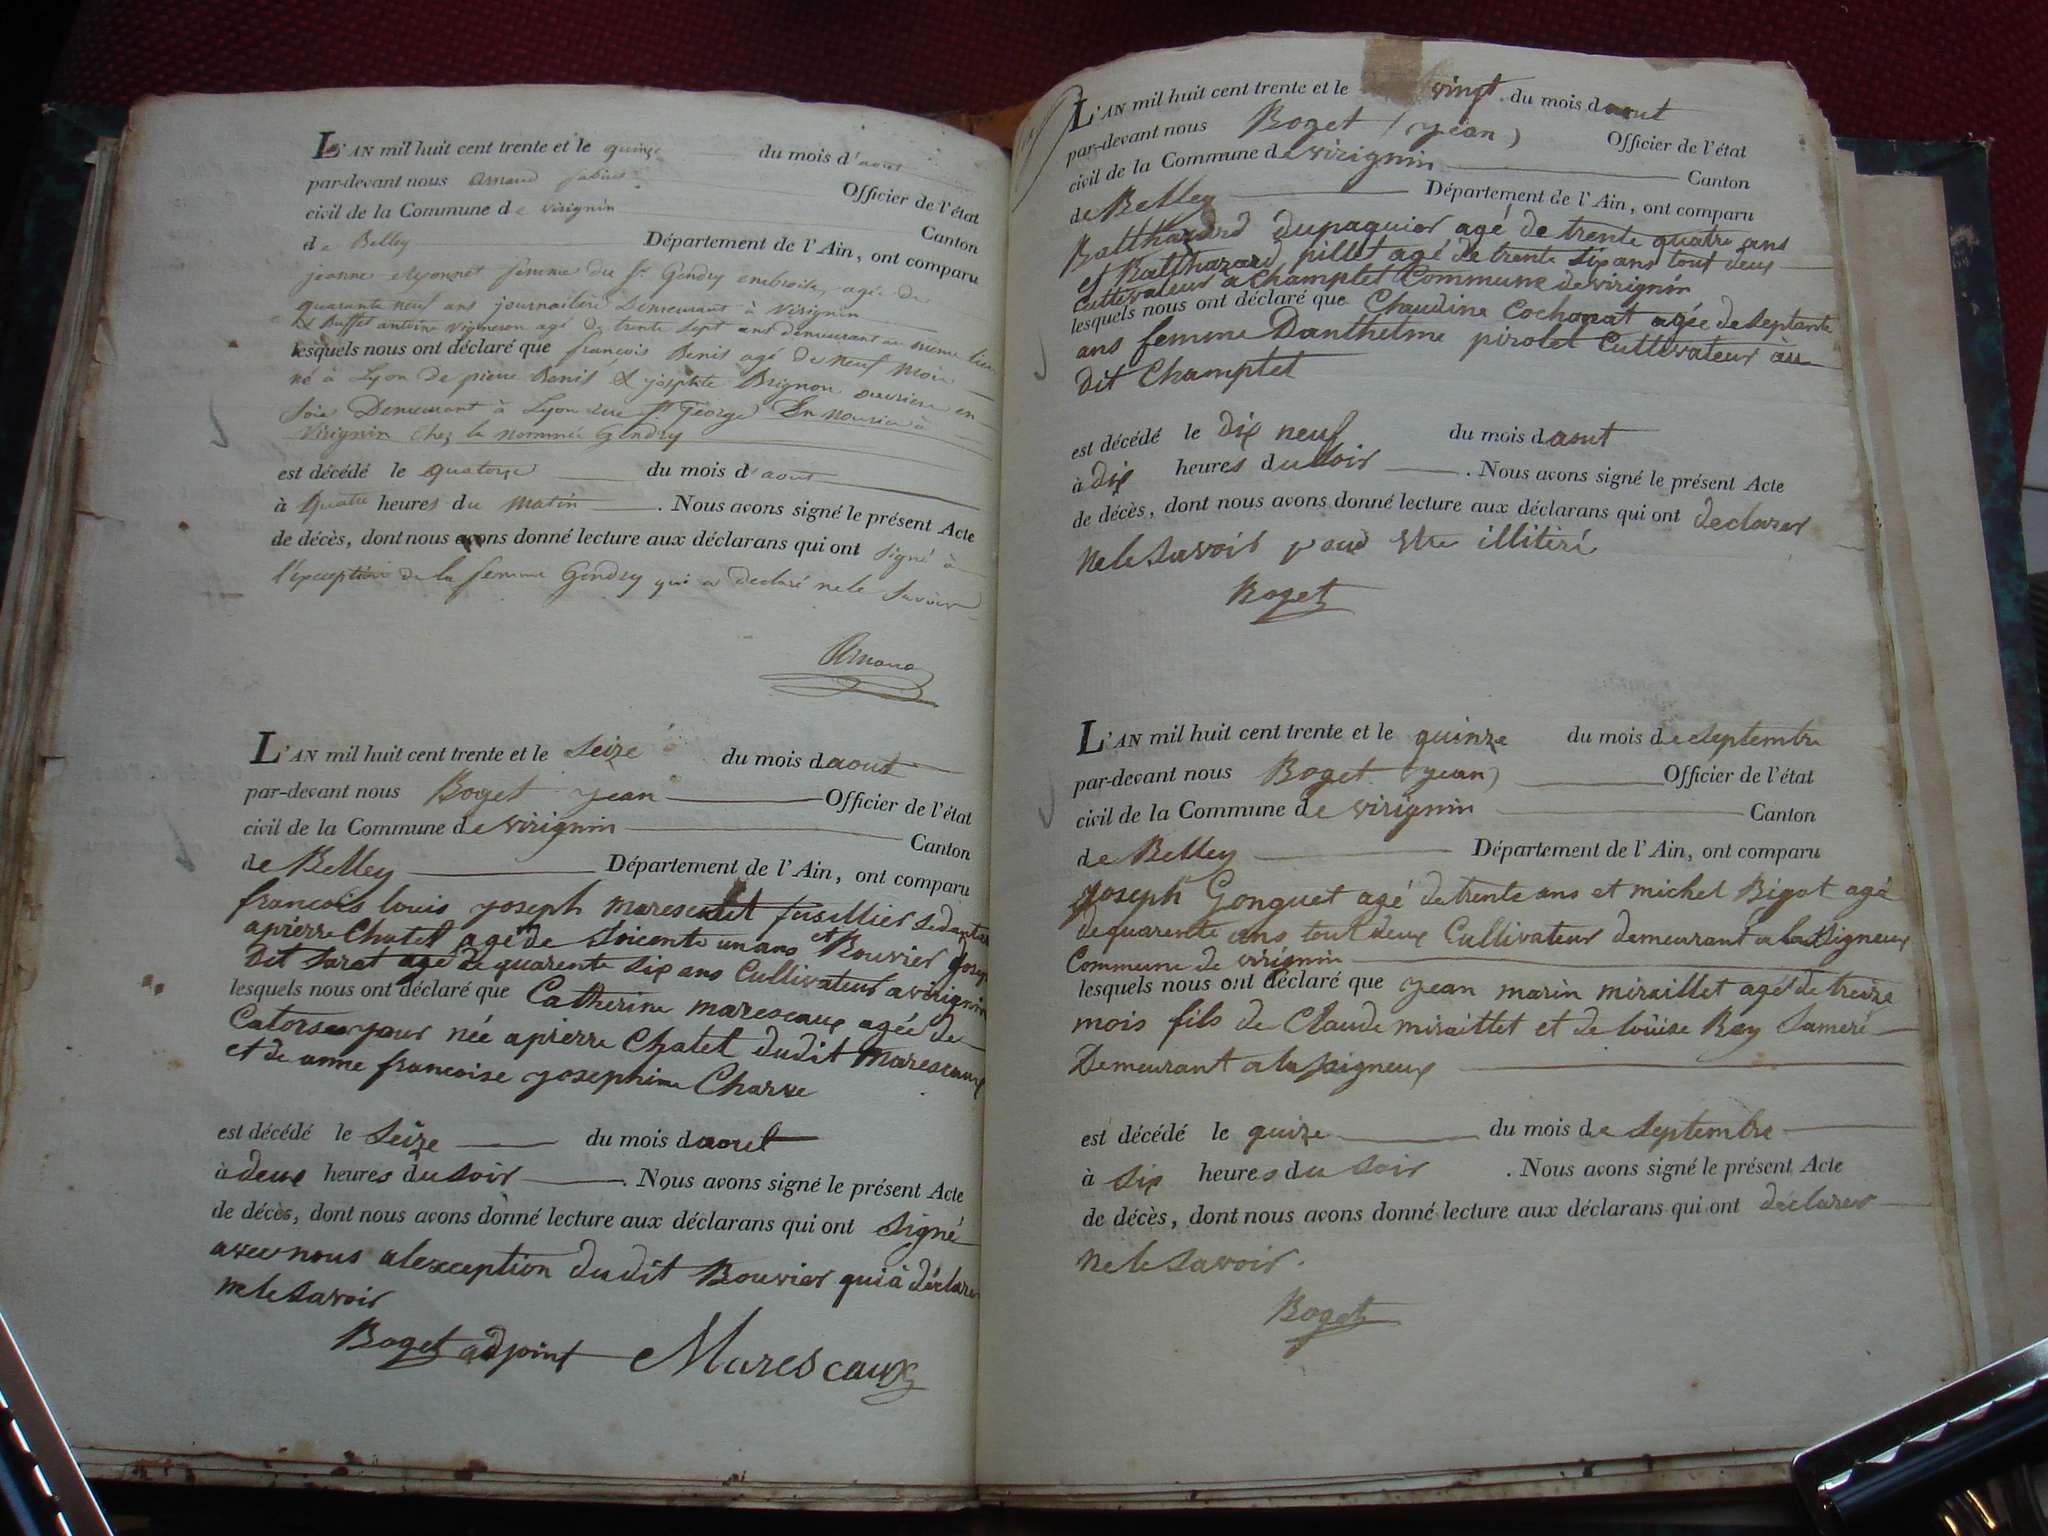 L'AN mil huit cent trente et le quinze du mois d'aout
par-devant nous Arnaud Officier de l'état
civil de la Commune de virignin Canton
de Belley Département de l'Ain, ont comparu
jeanne femme du Sr Gendry agée de
quarante neuf ans journalière Demeurant à Virignin
& Buffet antoine vigneron agé de trente sept ans demeurant au meme lieu
lesquels nous ont déclaré que françois Benis agé de neuf mois
né à Lyon de pierre Benis & josephte Brignon ouvriers en
Soie Demeurant à Lyon rue St George En nourice à
Virignin chez la nommée Gendry
est décédé le quatorze du mois d'aout
à quatre heures du matin . Nous avons signé le présent Acte
de décès, dont nous avons donné lecture aux déclarans qui ont signé à
l'exception de la femme Gendry qui a declaré ne le savoir
Arnaud
L'AN mil huit cent trente et le Seize du mois daout
par-devant nous Boget jean Officier de l'état
civil de la Commune de virignin Canton
de Belley Département de l'Ain, ont comparu
francois louis joseph marescaut fusillier sedantere
apierre Chatel agé de soicente un ans et Bouvier josep
Dit Sarat agé de quarente six ans Cullivateur a virignin
lesquels nous ont déclaré que Catherine marescaux agée de
Catorse jour née apierre Chatel dudit marescaux
et de anne francoise josephine Charve
est décédé le Seize du mois daout
à deux heures du soir . Nous avons signé le présent Acte
de décès, dont nous avons donné lecture aux déclarans qui ont signé
avec nous alexception dudit Bouvier qui à déclarer
ne le savoir
Boget adjoint Marescaux
L'AN mil huit cent trente et le vingt du mois daout
par-devant nous Boget (jean) Officier de l'état
civil de la Commune de virignin Canton
de Belley Département de l'Ain, ont comparu
Balthazard dupaquier agé de trente quatre ans
et Balthazard pillet agé de trente six ans tout deux
Cultivateur à Champtet Commune de virignin
lesquels nous ont déclaré que Claudine Cochonat agée de septante
ans femme Danthelme pirolet Cultivateur au
dit Champtet
est décédé le dix neuf du mois daout
à dix heures du soir . Nous avons signé le présent Acte
de décès, dont nous avons donné lecture aux déclarans qui ont declarer
ne le savoir pour etre illitéré
Boget
L'AN mil huit cent trente et le quinze du mois de septembre
par-devant nous Boget (jean) Officier de l'état
civil de la Commune de virignin Canton
de Belley Département de l'Ain, ont comparu
joseph Gonguet agé de trente ans et michel Bigot agé
de quarente ans tout deux Cullivateur demeurant a lassigneux
Commune de virignin
lesquels nous ont déclaré que jean marin miraillet agé de treize
mois fils de Claude miraillet et de loüise Bay sameré
Demeurant a lassigneux
est décédé le quize du mois de septembre
à six heures du soir . Nous avons signé le présent Acte
de décès, dont nous avons donné lecture aux déclarans qui ont déclarer
ne le savoir.
Boget